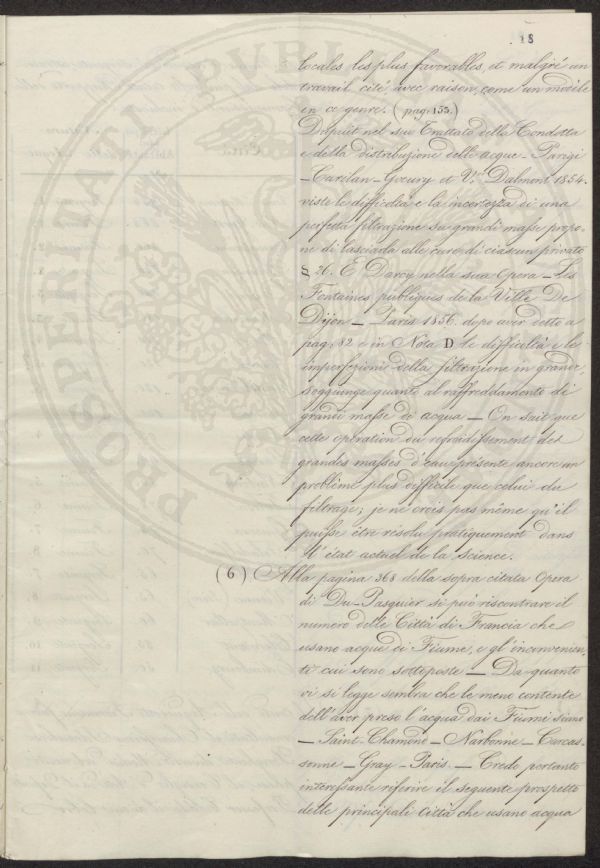 18
locales les plus favorables, et malgré un
travail cité avec raison, come un modèle
en ce genre. (pag. 155.)
Dupuit nel suo Trattato della Condotta
e della distribuzione delle acque – Parigi
– Carilan-Gœury et V.r Dalmont 1854.
viste le difficoltà e la incertezza di una
perfetta filtrazione su grandi masse propo-
ne di lasciarla alle cure di ciascun privato
§ 26. E Darcy nella sua Opera – Les
Fontaines publiques de la Ville De
Dijon – Paris 1856. dopo aver detto a
pag. 82 e in Nota D le difficoltà e le
imperfezioni della filtrazione in grande,
soggiunge quanto al raffreddamento di
grandi masse di acqua – On sait que
cette opération du refroidissement des
grandes masses d'eau présente ancore un
problème plus difficile que celui du
filtrage; je ne crois pas même qu'il
puisse être résolu pratiquement dans
l'état actuel de la science.
(6) Alla pagina 368 della sopra citata Opera
di Du-Pasquier si può riscontrare il
numero delle Città di Francia che
usano acque di Fiume, e gl'inconvenien-
ti cui sono sottoposte – Da quanto
vi si legge sembra che le meno contente
dell'aver preso l'acqua dai Fiumi siano
– Saint-Chamond – Narbonne – Carcas-
sonne – Gray – Paris. – Credo pertanto
interessante riferire il seguente prospetto
delle principali Città che usano acqua
PROSPERITATI PVBLI